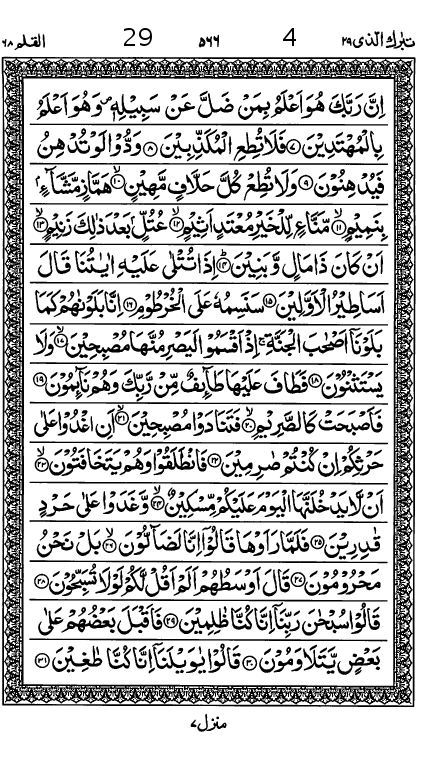 تبٰرك الذى ٢٩ 4 ٥٦٦ 29 القلم ٦٨
اِنَّ رَبَّكَ هُوَ اَعْلَمُ بِمَنْ ضَلَّ عَنْ سَبِيْلِهٖ ۪ وَ هُوَ اَعْلَمُ
بِالْمُهْتَدِيْنَ ۷ فَلَا تُطِعِ الْمُكَذِّبِيْنَ ۸ وَدُّوْا لَوْ تُدْهِنُ
فَيُدْهِنُوْنَ ۹ وَلَا تُطِعْ كُلَّ حَلَّافٍ مَّهِيْنٍ ۙ ۱۰ هَمَّازٍ مَّشَّآءٍۭ
بِنَمِيْمٍ ۙ ۱۱ مَّنَّاعٍ لِّلْخَيْرِ مُعْتَدٍ اَثِيْمٍ ۙ ۱۲ عُتُلٍّۭ بَعْدَ ذٰلِكَ زَنِيْمٍ ۙ ۱۳
اَنْ كَانَ ذَا مَالٍ وَّ بَنِيْنَ ؕ ۱۴ اِذَا تُتْلٰى عَلَيْهِ اٰيٰتُنَا قَالَ
اَسَاطِيْرُ الْاَوَّلِيْنَ ۱۵ سَنَسِمُهٗ عَلَى الْخُرْطُوْمِ ۱۶ اِنَّا بَلَوْنٰهُمْ كَمَا
بَلَوْنَاۤ اَصْحٰبَ الْجَنَّةِ ۚ اِذْ اَقْسَمُوْا لَيَصْرِمُنَّهَا مُصْبِحِيْنَ ۙ ۱۷ وَلَا
يَسْتَثْنُوْنَ ۱۸ فَطَافَ عَلَيْهَا طَآئِفٌ مِّنْ رَّبِّكَ وَهُمْ نَآئِمُوْنَ ۱۹
فَاَصْبَحَتْ كَالصَّرِيْمِ ۙ ۲۰ فَتَنَادَوْا مُصْبِحِيْنَ ۙ ۲۱ اَنِ اغْدُوْا عَلٰى
حَرْثِكُمْ اِنْ كُنْتُمْ صٰرِمِيْنَ ۲۲ فَانْطَلَقُوْا وَهُمْ يَتَخَافَتُوْنَ ۙ ۲۳
اَنْ لَّا يَدْخُلَنَّهَا الْيَوْمَ عَلَيْكُمْ مِّسْكِيْنٌ ۙ ۲۴ وَّ غَدَوْا عَلٰى حَرْدٍ
قٰدِرِيْنَ ۲۵ فَلَمَّا رَاَوْهَا قَالُوْۤا اِنَّا لَضَآلُّوْنَ ۙ ۲۶ بَلْ نَحْنُ
مَحْرُوْمُوْنَ ۲۷ قَالَ اَوْسَطُهُمْ اَلَمْ اَقُلْ لَّكُمْ لَوْلَا تُسَبِّحُوْنَ ۲۸
قَالُوْا سُبْحٰنَ رَبِّنَاۤ اِنَّا كُنَّا ظٰلِمِيْنَ ۲۹ فَاَقْبَلَ بَعْضُهُمْ عَلٰى
بَعْضٍ يَّتَلَاوَمُوْنَ ۳۰ قَالُوْا يٰوَيْلَنَاۤ اِنَّا كُنَّا طٰغِيْنَ ۳۱
منزل ٧